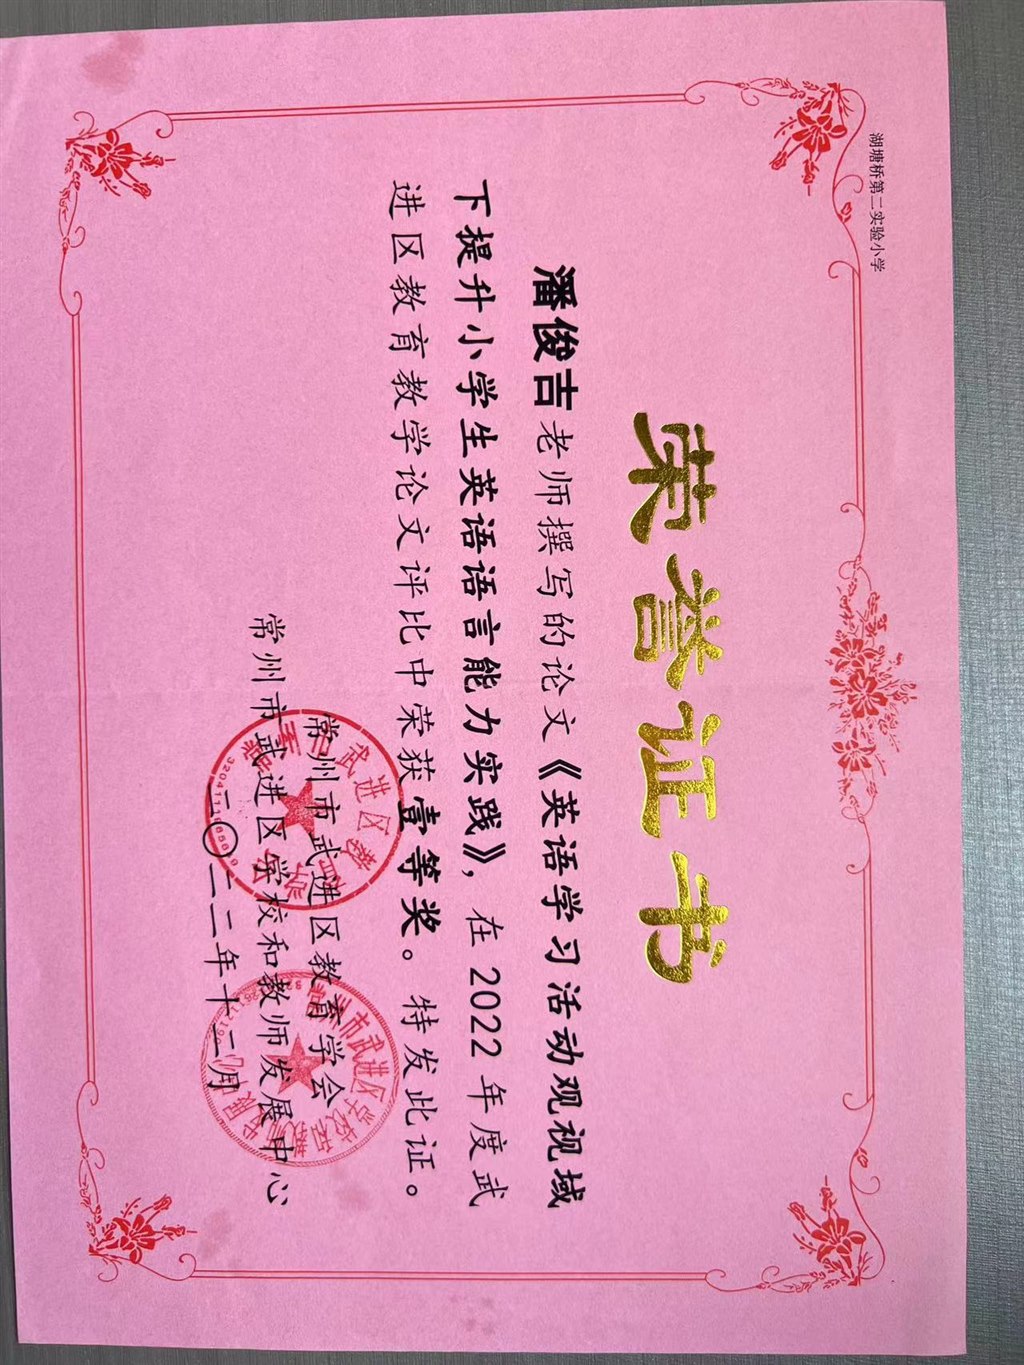 湖塘桥第二实验小学
荣誉证书
潘俊吉老师撰写的论文《英语学习活动观视域
下提升小学生英语语言能力实践》，在 2022 年度武
进区教育教学论文评比中荣获壹等奖。特发此证。
常州市武进区教育学会
常州市武进区学校和教师发展中心
二〇二二年十二月